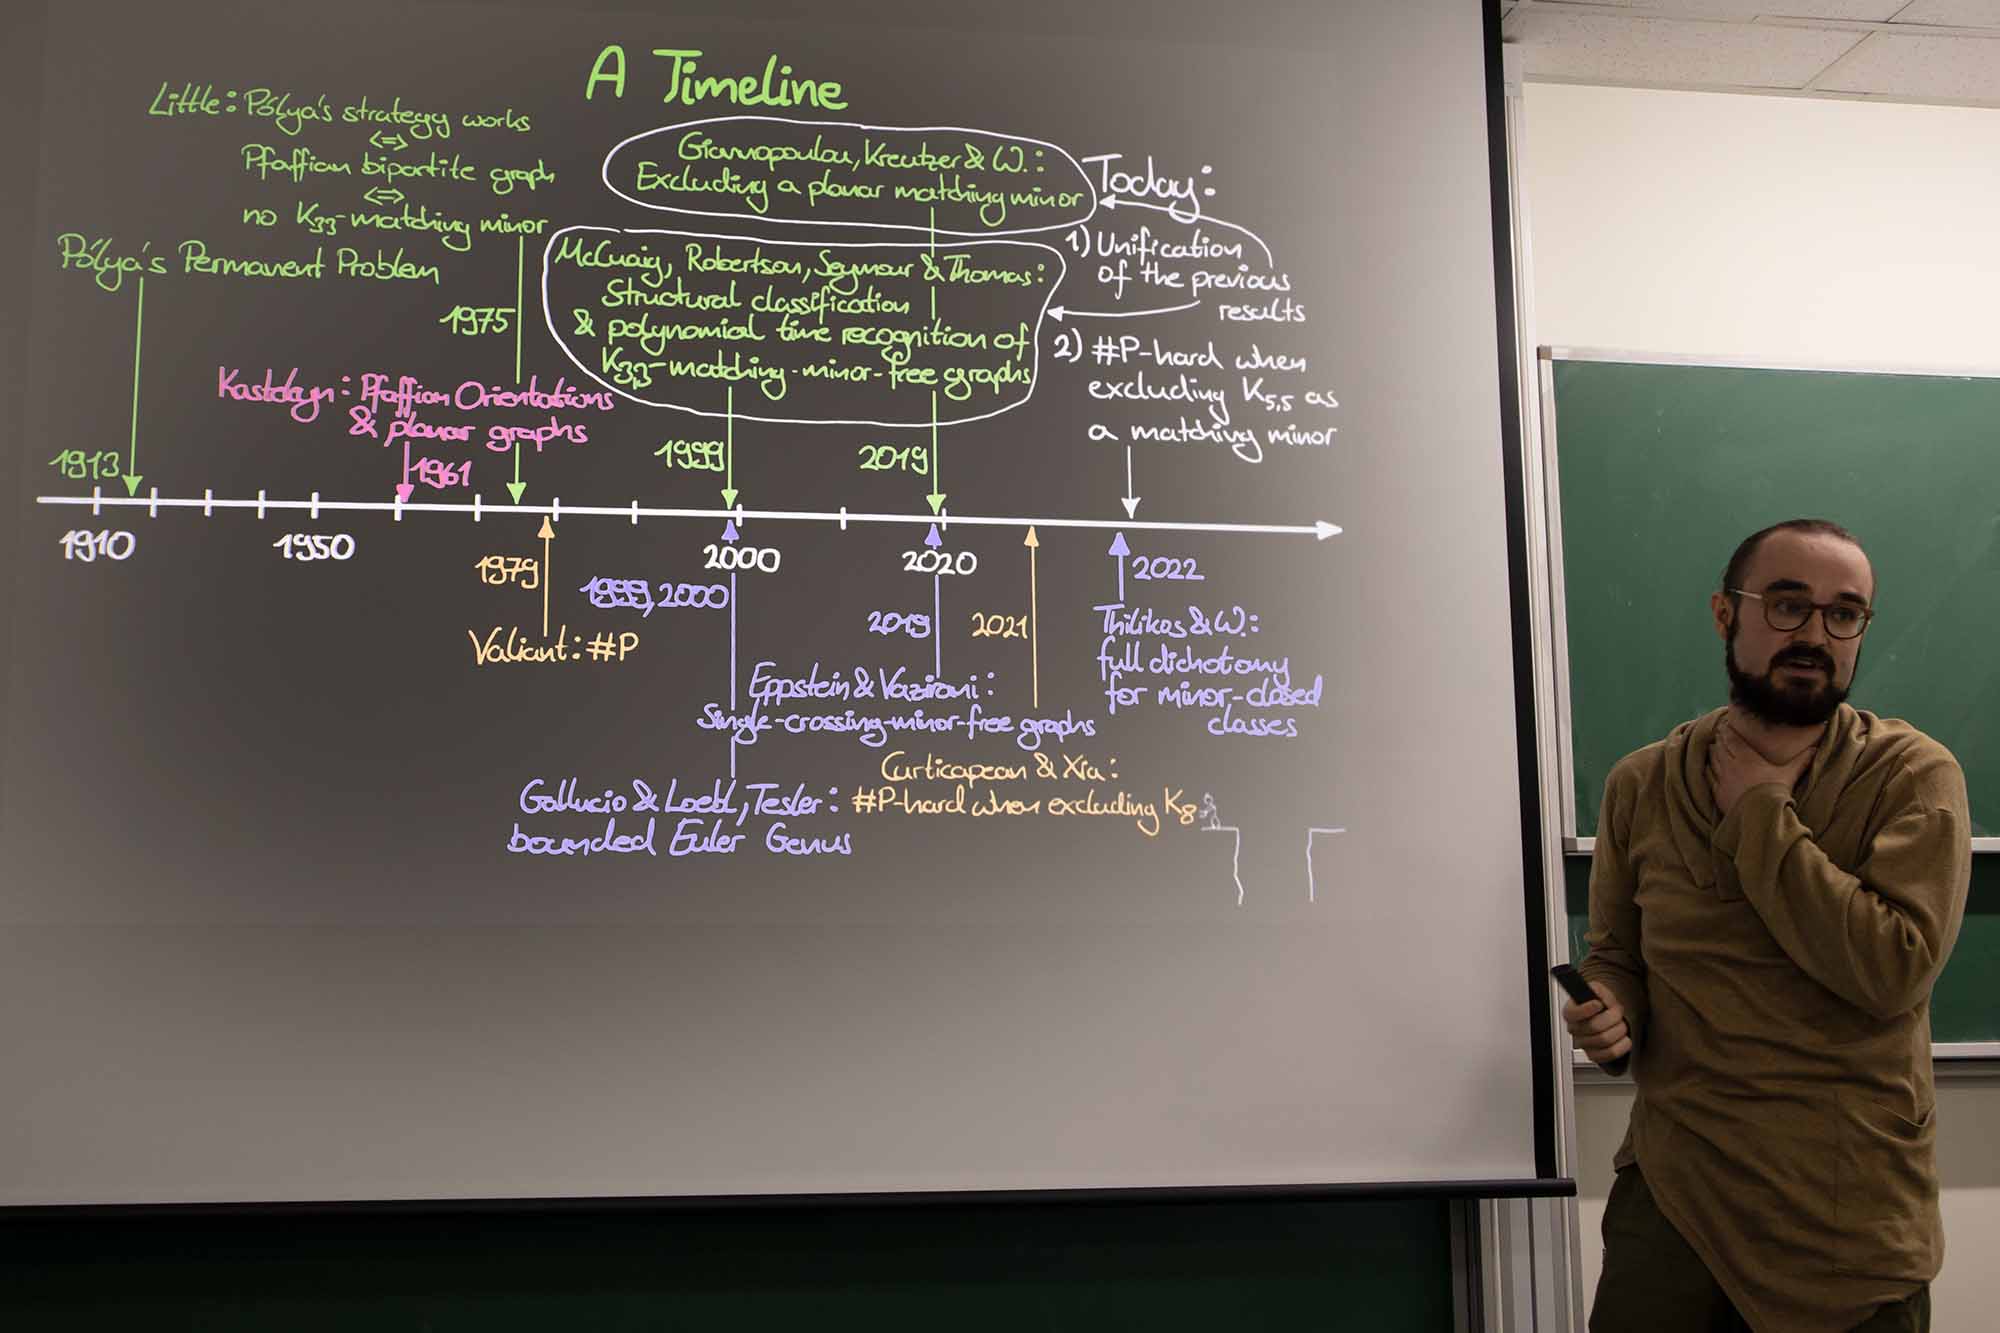 A Timeline
Little: Pólya's strategy works
<=>
Pfaffian bipartite graph
<=>
no K33-matching minor
Pólya's Permanent Problem
1975
Kasteleyn: Pfaffian Orientations
& planar graphs
1913
1961
Giannopoulou, Kreutzer & W.:
Excluding a planar matching minor
McCuaig, Robertson, Seymour & Thomas:
Structural classification
& polynomial time recognition of
K3,3-matching-minor-free graphs
1999
2019
Today:
1) Unification
of the previous
results
2) #P-hard when
excluding K5,5 as
a matching minor
1910
1950
2000
2020
1979
Valiant: #P
1999, 2000
2019
2021
2022
Thilikos & W.:
full dichotomy
for minor-closed
classes
Eppstein & Vazirani:
Single-crossing-minor-free graphs
Curticapean & Xia:
#P-hard when excluding K8
Gallucio & Loebl, Tesler:
bounded Euler Genus